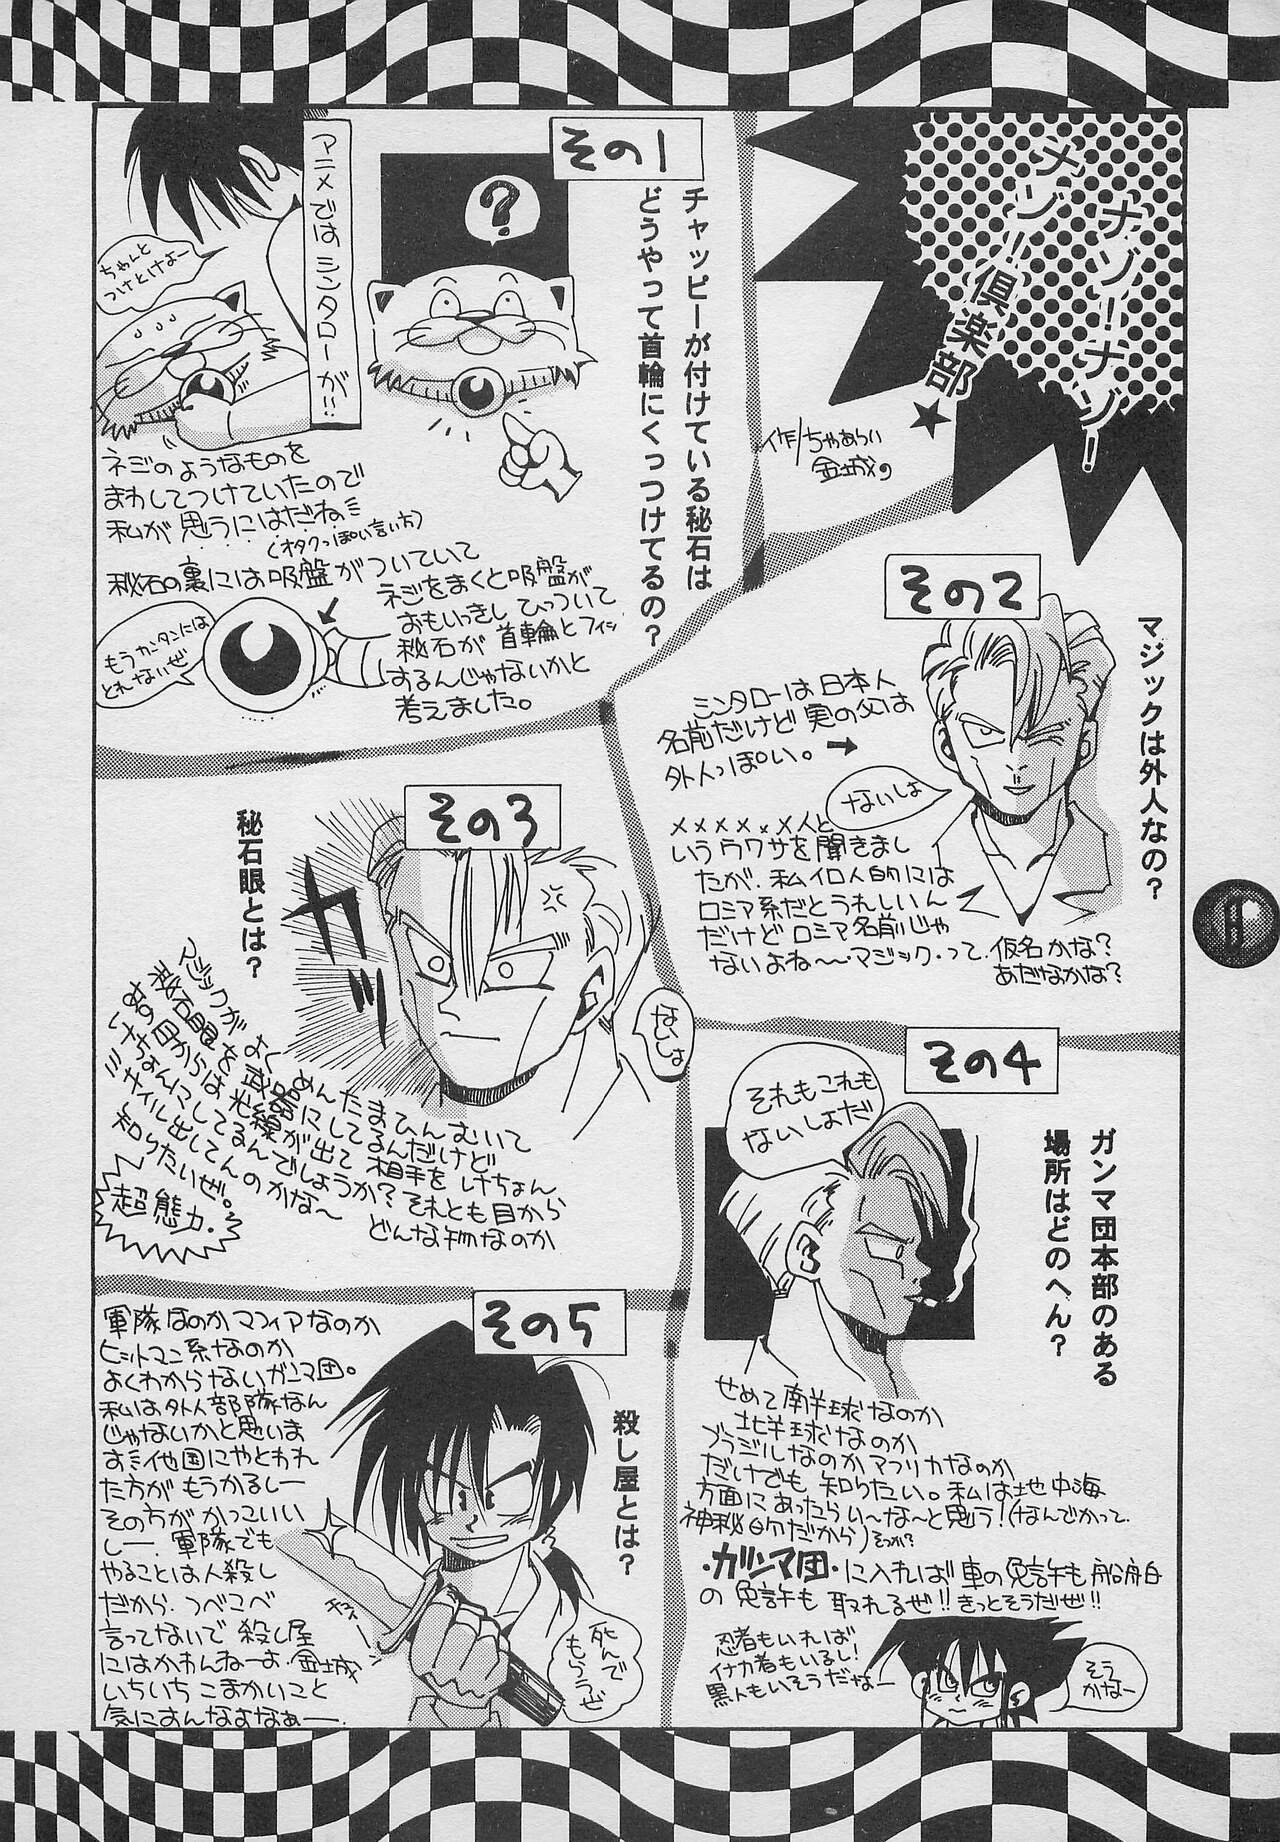 ナゾ！ナゾ！
ナゾ！倶楽部★
作/ちゃあらい
金城。
その1
チャッピーが付けている秘石は
どうやって首輪にくっつけてるの？
？
アニメではシンタローが!!
ちゃんと
つけとけよー
ネジのようなものを
まわしてつけていたので
私が思うにはだねミ
(オタクっぽい言い方)
秘石の裏には吸盤がついていて
ネジをまくと吸盤が
おもいっきしひっついて
秘石が首輪とフィット
するんじゃないかと
考えました。
もうカンタンには
とれないぜ
その2
マジックは外人なの？
シンタローは日本人
名前だけど実の父は
外人っぽい。
ないしょ
××××××人と
いうウワサを聞きまし
たが、私個人的には
ロシア系だとうれしいん
だけどロシア名前じゃ
ないよね〜・マジック・って、仮名かな？
あだなかな？
その3
秘石眼とは？
カッ
マジックがよくめんたまひんむいて
秘石眼を武器にしてるんだけど
あの目からは光線が出て相手をけちょん
けちょんにしてるんでしょうか？それとも目から
ミサイル出してんのかな〜どんな物なのか
知りたいぜ。
超能力.
ないしょ
その4
ガンマ団本部のある
場所はどのへん？
それもこれも
ないしょだ
せめて南半球なのか
北半球なのか
ブラジルなのかアフリカなのか
だけでも知りたい。私は地中海
方面にあったらい〜な〜と思う！(なんでかって、
神秘的だから)そうか？
・ガンマ団・に入れば車の免許も船舶
の免許も取れるぜ!!きっとそうだぜ!!
忍者もいれば
イナカ者もいるし！
黒人もいそうだなー
そう
かなー
その5
殺し屋とは？
軍隊なのかマフィアなのか
ヒットマン系なのか
よくわからないガンマ団。
私は、外人部隊なん
じゃないかと思いま
すミ他国にやとわれ
た方がもうかるしー
その方がかっこいい
しー、軍隊でも
やることは人殺し
だから、つべこべ
言ってないで殺し屋
にはかわんねーよ、金城
いちいちこまかいこと
気にすんなよなぁー
チャキー
死んで
もらうぜ